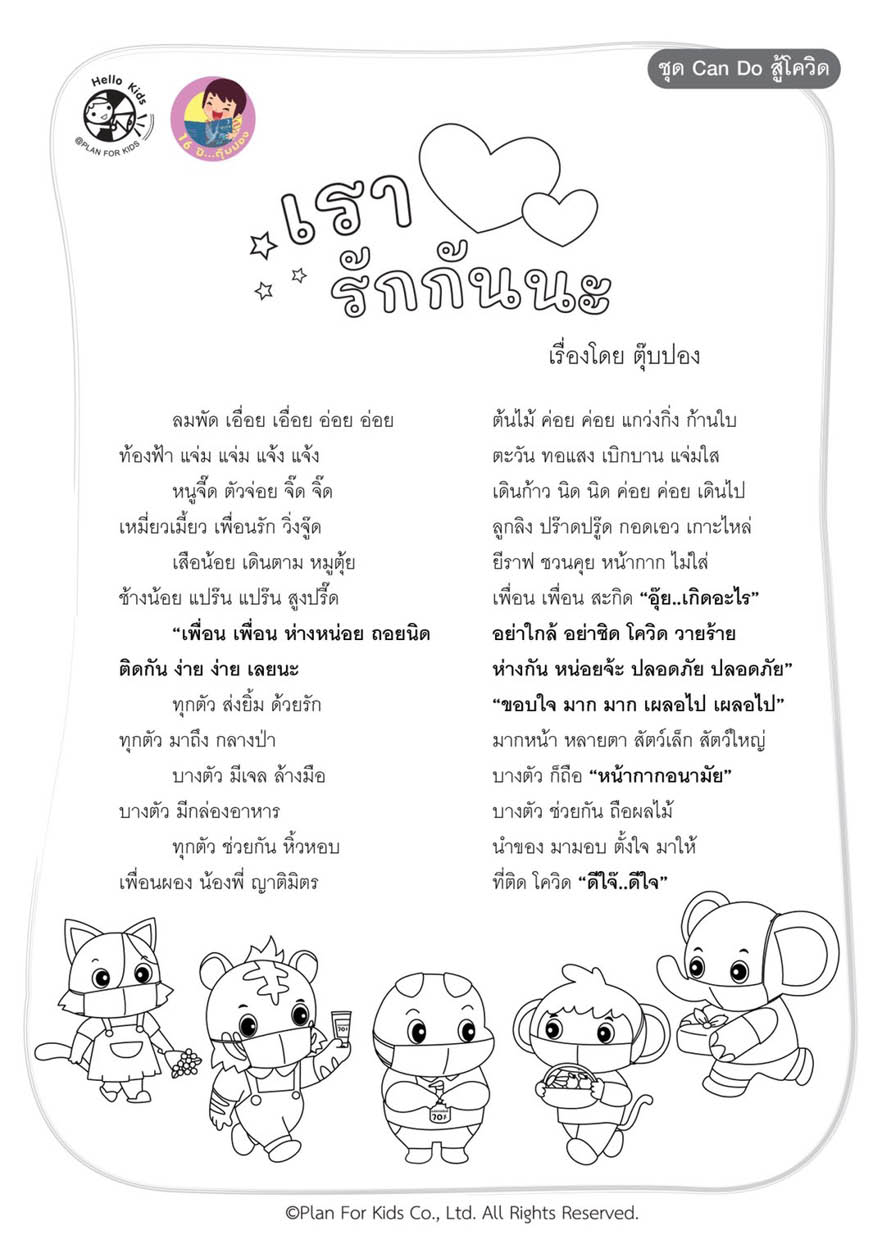 ชุด Can Do สู้โควิด
Hello Kids
@PLAN FOR KIDS
16 ปี...ตุ๊บปอง
เรา
รักกันนะ
เรื่องโดย ตุ๊บปอง
ลมพัด เอื่อย เอื่อย อ่อย อ่อย ต้นไม้ ค่อย ค่อย แกว่งกิ่ง ก้านใบ
ท้องฟ้า แจ่ม แจ่ม แจ้ง แจ้ง ตะวัน ทอแสง เบิกบาน แจ่มใส
หนูจี๊ด ตัวจ่อย จิ๊ด จิ๊ด เดินก้าว นิด นิด ค่อย ค่อย เดินไป
เหมี่ยวเมี้ยว เพื่อนรัก วิ่งจู๊ด ลูกลิง ปร๊าดปรู๊ด กอดเอว เกาะไหล่
เสือน้อย เดินตาม หมูตุ้ย ยีราฟ ชวนคุย หน้ากาก ไม่ใส่
ช้างน้อย แปร๊น แปร๊น สูงปรี๊ด เพื่อน เพื่อน สะกิด “อุ๊ย..เกิดอะไร”
“เพื่อน เพื่อน ห่างหน่อย ถอยนิด อย่าใกล้ อย่าชิด โควิด วายร้าย
ติดกัน ง่าย ง่าย เลยนะ ห่างกัน หน่อยจ้ะ ปลอดภัย ปลอดภัย”
ทุกตัว ส่งยิ้ม ด้วยรัก “ขอบใจ มาก มาก เผลอไป เผลอไป”
ทุกตัว มาถึง กลางป่า มากหน้า หลายตา สัตว์เล็ก สัตว์ใหญ่
บางตัว มีเจล ล้างมือ บางตัว ก็ถือ “หน้ากากอนามัย”
บางตัว มีกล่องอาหาร บางตัว ช่วยกัน ถือผลไม้
ทุกตัว ช่วยกัน หิ้วหอบ นำของ มามอบ ตั้งใจ มาให้
เพื่อนผอง น้องพี่ ญาติมิตร ที่ติด โควิด “ดีใจ๊..ดีใจ”
70%
70%
©Plan For Kids Co., Ltd. All Rights Reserved.